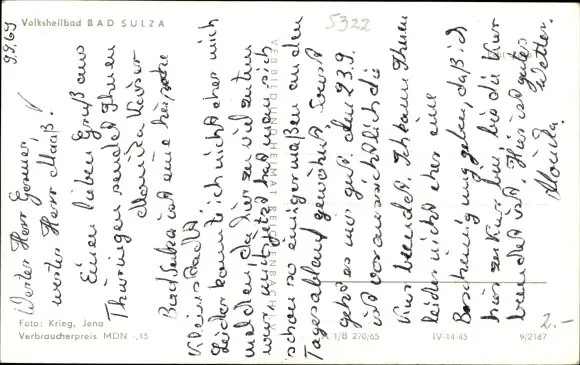 Volksheilbad BAD SULZA
5322
9.9.69
Werter Herr Germer,
werter Herr Maaß!
Einen lieben Gruß aus
Thüringen sendet Ihnen
Monika Kaiser
Bad Sulza ist eine
Kleinstadt.
Leider konnte ich nicht eher mich
melden, da hier zu viel zu tun
war mit jetzt hat man sich
schon so einigermaßen an den
Tagesablauf gewöhnt, sonst
geht es mir gut. Am 23.9.
ist voraussichtlich die
Kur beendet. Ich kann Ihnen
leider nicht eher eine
Bescheinigung geben, daß ich
hier zur Kur bin, bis die Kur
beendet ist. Hier ist gutes
Wetter.
Monika.
VERBILDUNGHEIMAT REICHENBACH I. V.
Foto: Krieg, Jena
Verbraucherpreis MDN -,15
1/B 270/65
IV-14-45
9/2187
2.-